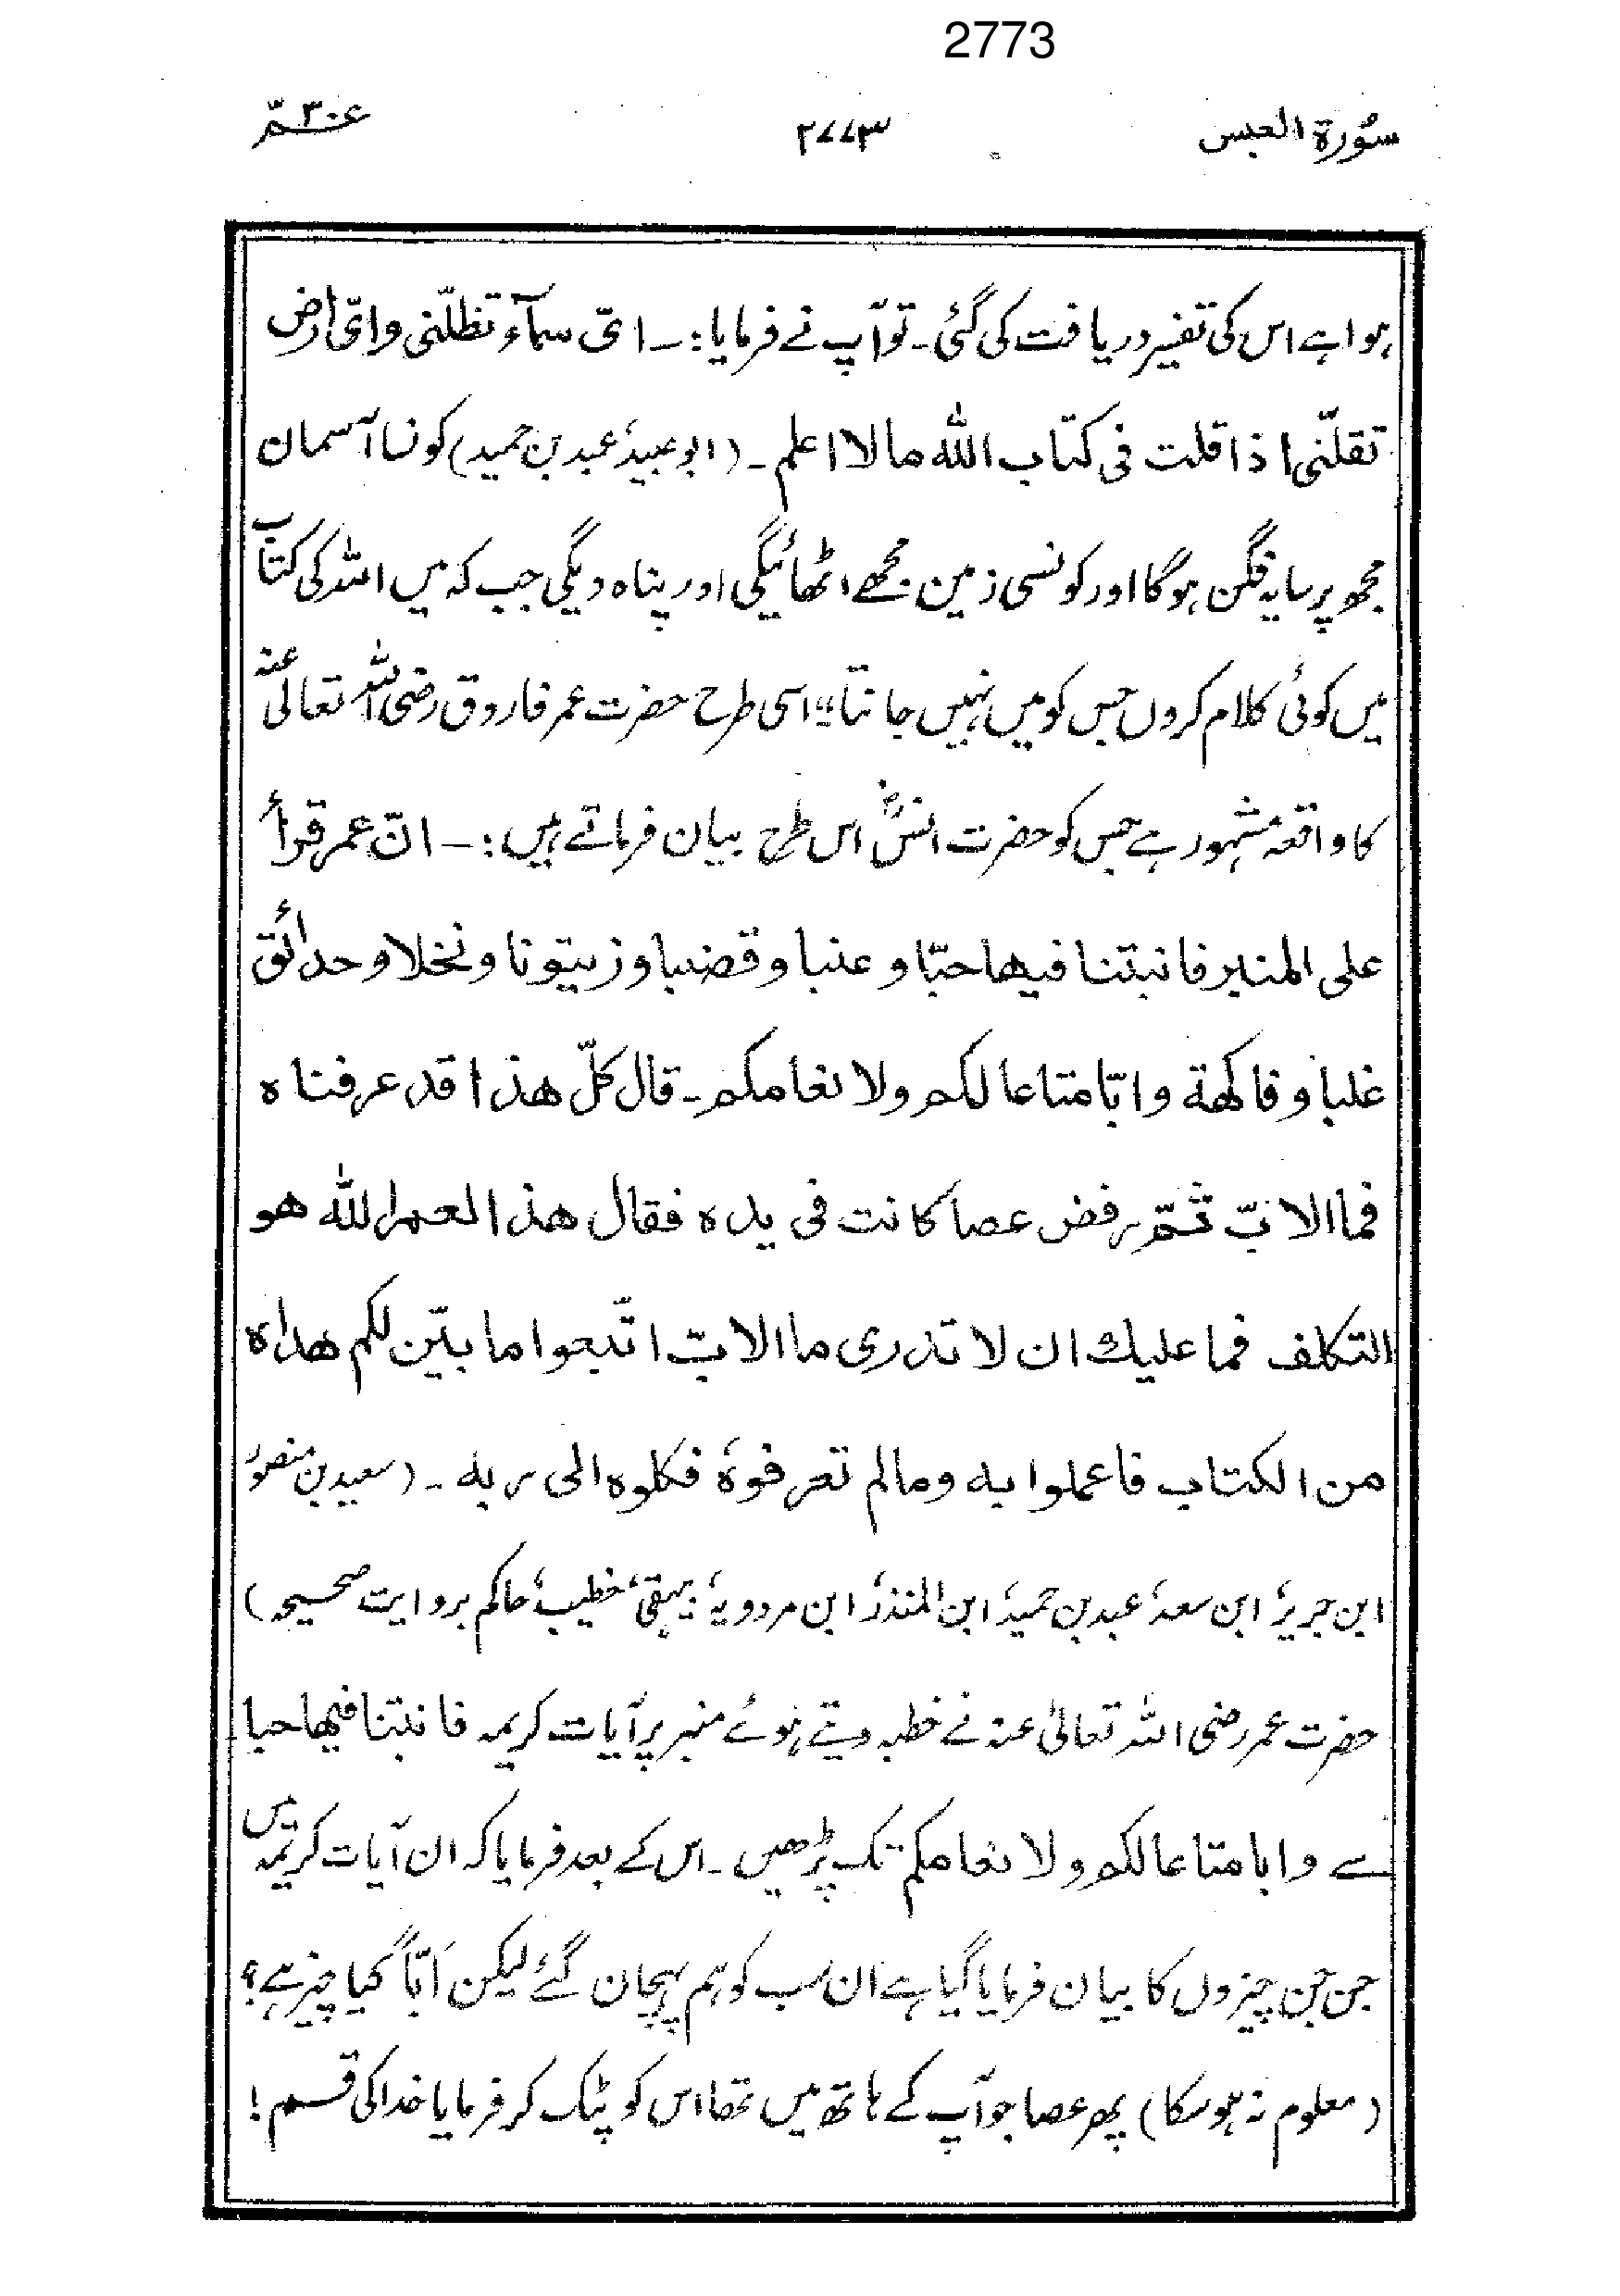 2773
سُورۃ العبس ۲۷۷۳ عمّ ۳۰
ہوا ہے اس کی تفسیر دریافت کی گئی۔ تو آپ نے فرمایا:۔ ایّ سمآء تظلّنی وایّ ارض
تقلّنی اذا قلت فی کتاب اللہ مالا اعلم۔ (ابوعبید، عبد بن حمید) کونسا آسمان
مجھ پر سایہ فگن ہوگا اور کونسی زمین مجھے اٹھائیگی اور پناہ دیگی جب کہ میں اللہ کی کتاب
میں کوئی کلام کروں جس کو میں نہیں جانتا" اسی طرح حضرت عمر فاروق رضی اللہ تعالیٰ عنہ
کا واقعہ مشہور ہے جس کو حضرت انسؓ اس طرح بیان فرماتے ہیں:۔ انّ عمر قرأ
علی المنبر فانبتنا فیها حبّا و عنبا و قضبا و زیتونا و نخلا و حدائق
غلبا و فاکهة و ابّا متاعا لکم ولانعامکم۔ قال کلّ هذا قد عرفناه
فما الابّ ثمّ رفض عصا کانت فی یده فقال هذا لعمر اللہ هو
التکلف فما علیك ان لا تدری ما الابّ اتّبعوا ما بیّن لکم هداه
من الکتاب فاعملوا به ومالم تعرفوہُ فکلوه الی ربه۔ (سعید بن منصور،
ابن جریر، ابن سعد، عبد بن حمید، ابن المنذر، ابن مردویہ، بیہقی، خطیب، حاکم بروایت صحیحہ)
حضرت عمر رضی اللہ تعالیٰ عنہ نے خطبہ دیتے ہوئے منبر پر آیات کریمہ فانبتنا فیها حبا
سے وابا متاعا لکم ولانعامکم تک پڑھیں۔ اس کے بعد فرمایا کہ ان آیات کریمہ میں
جن جن چیزوں کا بیان فرمایا گیا ہے ان سب کو ہم پہچان گئے لیکن اَبّاً کیا چیز ہے؟
(معلوم نہ ہوسکا) پھر عصا جو آپ کے ہاتھ میں تھا اس کو پٹک کر فرمایا خدا کی قسم!